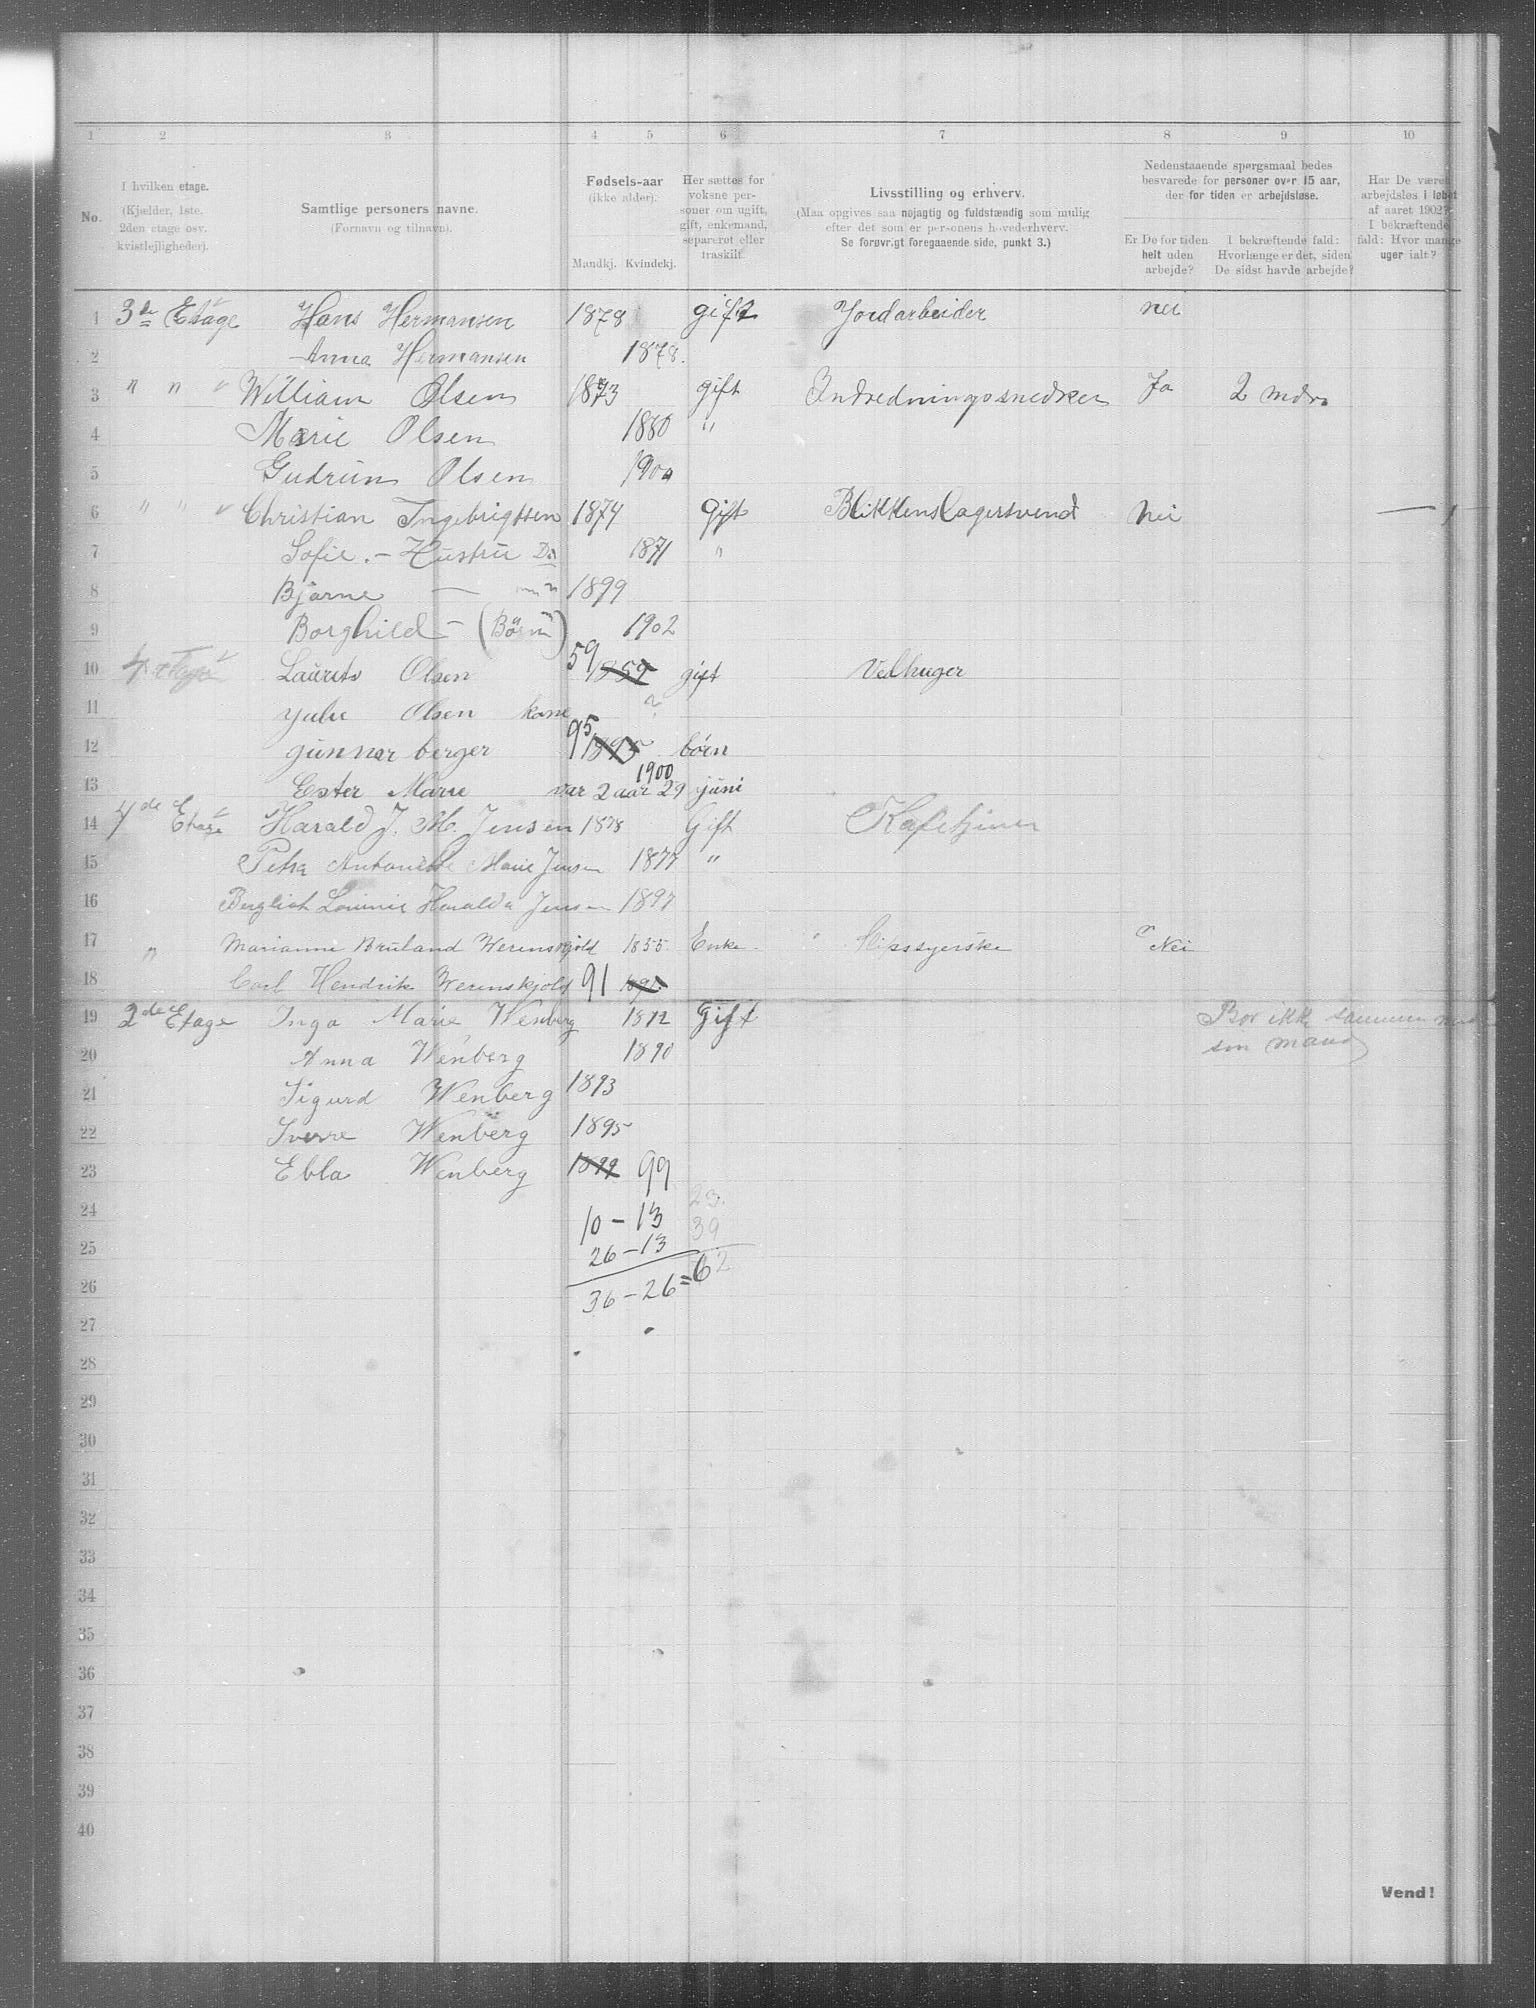 1 2 3 4 5 6 7 8 9 10
No.
I hvilken etage.
(Kjælder, 1ste.
2den etage osv.
kvistlejligheder).
Samtlige personers navne.
(Fornavn og tilnavn).
Fødsels-aar
(ikke alder).
Mandkj. Kvindekj.
Her sættes for
voksne per-
soner om ugift,
gift, enkemand,
separeret eller
fraskilt.
Livsstilling og erhverv.
(Maa opgives saa nøjagtig og fuldstændig som mulig
efter det som er personens hovederhverv.
Se forøvrigt foregaaende side, punkt 3.)
Nedenstaaende spørgsmaal bedes
besvarede for personer over 15 aar,
der for tiden er arbejdsløse.
Er De for tiden
helt uden
arbejde?
I bekræftende fald:
Hvorlænge er det, siden
De sidst havde arbejde?
Har De været
arbejdsløs i løbet
af aaret 1902?
I bekræftende
fald: Hvor mange
uger ialt?
1 3de Etage Hans Hermansen 1878 gift Jordarbeider nei
2 Anna Hermansen 1878.
3 " " " William Olsen 1873 gift Indredningssnedker Ja 2 mdr.
4 Marie Olsen 1880 "
5 Gudrun Olsen 1900
6 " " " Christian Ingebrigtsen 1874 gift Blikkenslagersvend Nei —
7 Sofie. - Hustru Do 1871 "
8 Bjarne — " 1899
9 Borghild - (Børn) 1902
10 4 etage Laurits Olsen 59 1859 gift Vedhuger
11 Julie Olsen kone ?
12 gunnar berger 95 1895 børn
13 Ester Marie var 2 aar 29 juni 1900
14 4de Etage Harald J. M. Jensen 1878 Gift
15 Petra Antonette Marie Jensen 1877 "
16 Haralda Jensen 1897
17 " Marianne Bruland Werenskjold 1855. Enke. Slipssyerske Nei
18 Carl Hendrik Werenskjold 91
19 2de Etage Inga Marie Wenberg 1872 Gift Bor ikk sammen med
sin mand
20 Anna Wenberg 1890
21 Sigurd Wenberg 1893
22 Sverre Wenberg 1895
23 Ebla Wenberg 1899 99
24 10 - 13 23.
25 26 - 13 39
26 36 - 26 = 62
27
28
29
30
31
32
33
34
35
36
37
38
39
40
Vend!